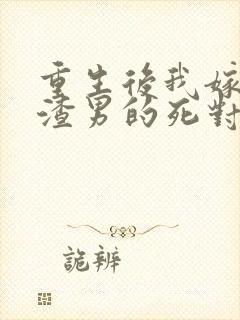 重生後我嫁
渣男的死對
詭辨